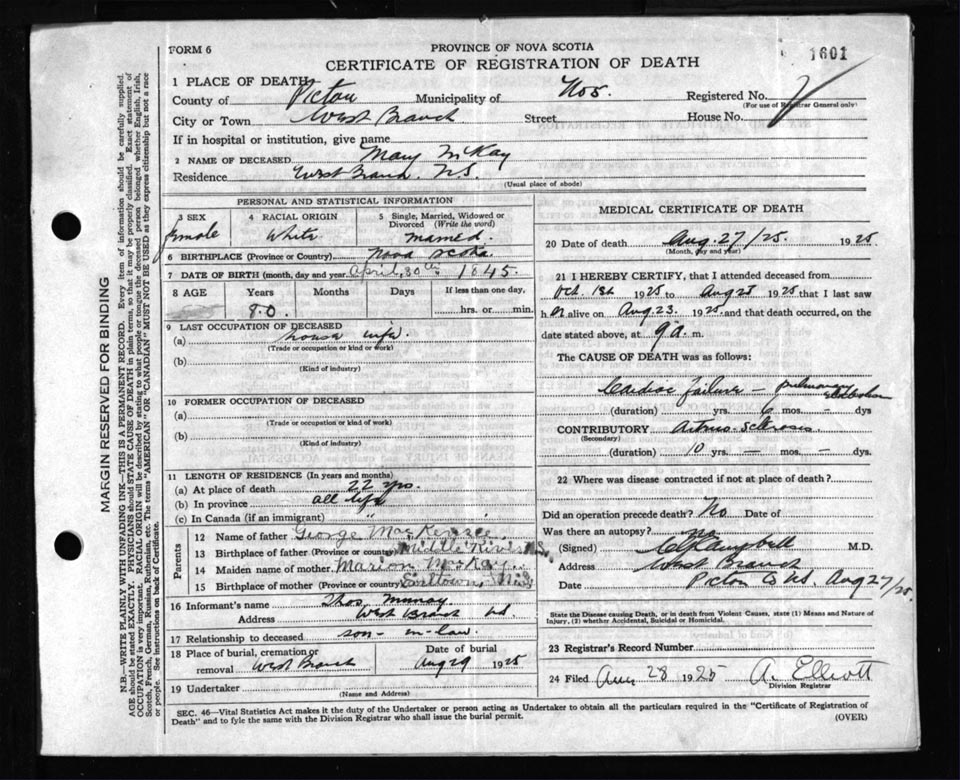 FORM 6
PROVINCE OF NOVA SCOTIA
1601
CERTIFICATE OF REGISTRATION OF DEATH
1 PLACE OF DEATH
County of Pictou Municipality of Registered No.
(For use of Registrar General only)
City or Town West Branch Street House No.
If in hospital or institution, give name
2 NAME OF DECEASED Mary McKay
Residence West Branch. N.S.
(Usual place of abode)
PERSONAL AND STATISTICAL INFORMATION
3 SEX 4 RACIAL ORIGIN 5 Single, Married, Widowed or Divorced (Write the word)
female White married.
6 BIRTHPLACE (Province or Country) Nova Scotia
7 DATE OF BIRTH (month, day and year) April, 30th 1845.
8 AGE Years Months Days If less than one day,
80. hrs. or min.
9 LAST OCCUPATION OF DECEASED
(a) house wife.
(Trade or occupation or kind or work)
(b)
(Kind of industry)
10 FORMER OCCUPATION OF DECEASED
(a)
(Trade or occupation or kind of work)
(b)
(Kind of industry)
11 LENGTH OF RESIDENCE (In years and months)
(a) At place of death 22 yrs.
(b) In province all life
(c) In Canada (if an immigrant)
Parents
12 Name of father George MacKenzie
13 Birthplace of father (Province or country) Middle River N.S.
14 Maiden name of mother Marion McKay
15 Birthplace of mother (Province or country) Earltown, N.S.
16 Informant's name Thos. Murray
Address West Branch N.S.
17 Relationship to deceased son-in-law.
18 Place of burial, cremation or removal West Branch Date of burial Aug 29 1925
19 Undertaker
(Name and Address)
MEDICAL CERTIFICATE OF DEATH
20 Date of death Aug. 27/25. 1925
(Month, day and year)
21 I HEREBY CERTIFY, that I attended deceased from
Oct. 1st 1925 to Aug 25 1925 that I last saw
her alive on Aug 23. 1925 and that death occurred, on the
date stated above, at 9 a. m.
The CAUSE OF DEATH was as follows:
Cardiac failure – pulmonary
(duration) yrs. 6 mos. – dys
CONTRIBUTORY Arterio-sclerosis
(Secondary)
(duration) 10 yrs. – mos. – dys.
22 Where was disease contracted if not at place of death?
Did an operation precede death? No Date of
Was there an autopsy? no
(Signed) Campbell M.D.
Address West Branch
Pictou Co N.S.
Date Aug 27/25.
State the Disease causing Death, or in death from Violent Causes, state (1) Means and Nature of
Injury, (2) whether Accidental, Suicidal or Homicidal.
23 Registrar's Record Number
24 Filed Aug 28 1925 A. Elliott
Division Registrar
SEC. 46—Vital Statistics Act makes it the duty of the Undertaker or person acting as Undertaker to obtain all the particulars required in the "Certificate of Registration of
Death" and to fyle the same with the Division Registrar who shall issue the burial permit.
(OVER)
MARGIN RESERVED FOR BINDING
N.B.—WRITE PLAINLY WITH UNFADING INK—THIS IS A PERMANENT RECORD. Every item of information should be carefully supplied.
AGE should be stated EXACTLY. PHYSICIANS should STATE CAUSE OF DEATH in plain terms, so that it may be properly classified. Exact statement of
OCCUPATION is very important. RACIAL ORIGIN will be described by stating to what people or tongue the deceased person belonged whether English, Irish,
Scotch, French, German, Russian, Ruthenian, etc. The terms "AMERICAN" OR "CANADIAN" MUST NOT BE USED as they express citizenship but not a race
or people. See instructions on back of Certificate.